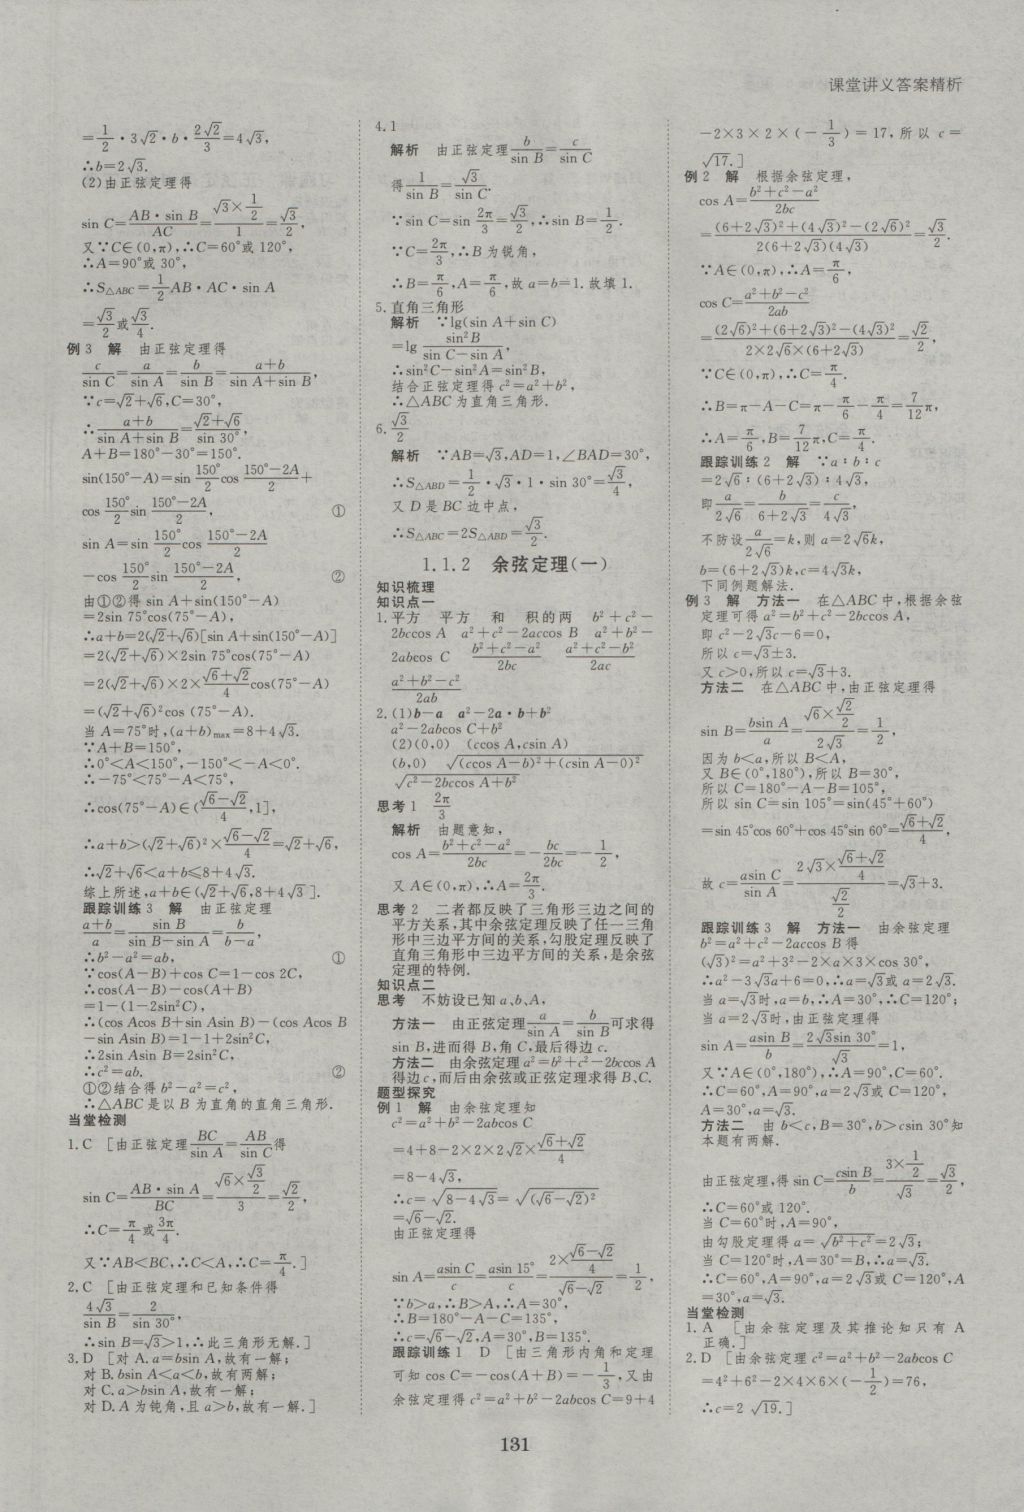 课堂讲义答案精析
=1/2·3√2·b·2√2/3=4√3,
∴b=2√3.
(2)由正弦定理得
sin C=AB·sin B/AC=(√3×1/2)/1=√3/2,
又∵C∈(0,π),∴C=60°或120°,
∴A=90°或30°,
∴S△ABC=1/2AB·AC·sin A
=√3/2或√3/4.
例3 解 由正弦定理得
c/sin C=a/sin A=b/sin B=(a+b)/(sin A+sin B),
∵c=√2+√6,C=30°,
∴(a+b)/(sin A+sin B)=(√2+√6)/sin 30°,
A+B=180°-30°=150°.
sin(150°-A)=sin 150°/2 cos (150°-2A)/2+
cos 150°/2 sin (150°-2A)/2, ①
sin A=sin 150°/2 cos (150°-2A)/2
-cos 150°/2 sin (150°-2A)/2, ②
由①②得sin A+sin(150°-A)
=2sin 75°cos(75°-A)
∴a+b=2(√2+√6)[sin A+sin(150°-A)]
=2(√2+√6)×2sin 75°cos(75°-A)
=2(√2+√6)×2×(√6+√2)/4 cos(75°-A)
=(√2+√6)²cos (75°-A).
当A=75°时,(a+b)max=8+4√3.
∵A+B=150°,
∴0°<A<150°,-150°<-A<0°.
∴-75°<75°-A<75°,
∴cos(75°-A)∈((√6-√2)/4,1],
∴a+b>(√2+√6)²×(√6-√2)/4=√2+√6,
∴√2+√6<a+b≤8+4√3.
综上所述,a+b∈(√2+√6,8+4√3].
跟踪训练3 解 由正弦定理
(a+b)/a=sin B/(sin B-sin A)=b/(b-a),
∴b²-a²=ab, ①
∵cos(A-B)+cos C=1-cos 2C,
∴cos(A-B)-cos(A+B)
=1-(1-2sin²C),
∴(cos Acos B+sin Asin B)-(cos Acos B
-sin Asin B)=1-1+2sin²C,
∴2sin Asin B=2sin²C,
∴c²=ab. ②
①②结合得b²-a²=c²,
∴△ABC是以B为直角的直角三角形.
当堂检测
1.C [由正弦定理BC/sin A=AB/sin C得
sin C=AB·sin A/BC=(√6×√3/2)/3=√2/2,
∴C=π/4或3π/4.
又∵AB<BC,∴C<A,∴C=π/4.]
2.C [由正弦定理和已知条件得
4√3/sin B=2/sin 30°,
∴sin B=√3>1,∴此三角形无解.]
3.D [对A.a=bsin A,故有一解;
对B.bsin A<a<b,故有两解;
对C.a>bsin A,故有一解;
对D.A为钝角,且a>b,故有一解.]
4.1
解析 由正弦定理b/sin B=c/sin C
得1/sin B=√3/sin C.
∵sin C=sin 2π/3=√3/2,∴sin B=1/2.
∵C=2π/3,∴B为锐角,
∴B=π/6,A=π/6,故a=b=1.故填1.
5.直角三角形
解析 ∵lg(sin A+sin C)
=lg sin²B/(sin C-sin A),
∴sin²C-sin²A=sin²B,
结合正弦定理得c²=a²+b²,
∴△ABC为直角三角形.
6.√3/2
解析 ∵AB=√3,AD=1,∠BAD=30°,
∴S△ABD=1/2·√3·1·sin 30°=√3/4,
又D是BC边中点,
∴S△ABC=2S△ABD=√3/2.
1.1.2 余弦定理(一)
知识梳理
知识点一
1.平方 平方 和 积的两 b²+c²-
2bccos A a²+c²-2accos B a²+b²-
2abcos C (b²+c²-a²)/2bc (a²+c²-b²)/2ac
(a²+b²-c²)/2ab
2.(1)b-a a²-2a·b+b²
a²-2abcos C+b²
(2)(0,0) (ccos A,csin A)
(b,0) √((ccos A-b)²+(csin A-0)²)
√(c²-2bccos A+b²)
思考1 2π/3
解析 由题意知,
cos A=(b²+c²-a²)/2bc=-bc/2bc=-1/2,
又A∈(0,π),∴A=2π/3.
思考2 二者都反映了三角形三边之间的
平方关系,其中余弦定理反映了任一三角
形中三边平方间的关系,勾股定理反映了
直角三角形中三边平方间的关系,是余弦
定理的特例.
知识点二
思考 不妨设已知a、b、A,
方法一 由正弦定理a/sin A=b/sin B可求得
sin B,进而得B,角C,最后得边c.
方法二 由余弦定理a²=b²+c²-2bccos A
得边c,而后由余弦或正弦定理求得B、C.
题型探究
例1 解 由余弦定理知
c²=a²+b²-2abcos C
=4+8-2×2×2√2×(√6+√2)/4
=8-4√3,
∴c=√(8-4√3)=√((√6-√2)²)
=√6-√2.
由正弦定理得
sin A=asin C/c=asin 15°/c=(2×(√6-√2)/4)/(√6-√2)=1/2,
∵b>a,∴B>A,∴A=30°,
∴B=180°-A-C=135°,
∴c=√6-√2,A=30°,B=135°.
跟踪训练1 D [由三角形内角和定理
可知cos C=-cos(A+B)=-1/3,又由
余弦定理得c²=a²+b²-2abcos C=9+4
-2×3×2×(-1/3)=17,所以c=
√17.]
例2 解 根据余弦定理,
cos A=(b²+c²-a²)/2bc
=((6+2√3)²+(4√3)²-(2√6)²)/(2(6+2√3)(4√3))=√3/2.
∵A∈(0,π),∴A=π/6,
cos C=(a²+b²-c²)/2ab
=((2√6)²+(6+2√3)²-(4√3)²)/(2×2√6×(6+2√3))=√2/2,
∵C∈(0,π),∴C=π/4.
∴B=π-A-C=π-π/6-π/4=7/12π,
∴A=π/6,B=7/12π,C=π/4.
跟踪训练2 解 ∵a∶b∶c
=2√6∶(6+2√3)∶4√3,
即a/2√6=b/(6+2√3)=c/4√3,
不防设a/2√6=k,则a=2√6k,
b=(6+2√3)k,c=4√3k,
下同例题解法.
例3 解 方法一 在△ABC中,根据余弦
定理可得a²=b²+c²-2bccos A,
即c²-2√3c-6=0,
所以c=√3±3.
又c>0,所以c=√3+3.
方法二 在△ABC中,由正弦定理得
sin B=bsin A/a=(√6×√2/2)/2√3=1/2,
因为b<a,所以B<A,
又B∈(0°,180°),所以B=30°,
所以C=180°-A-B=105°,
所以sin C=sin 105°=sin(45°+60°)
=sin 45°cos 60°+cos 45°sin 60°=(√6+√2)/4,
故c=asin C/sin A=(2√3×(√6+√2)/4)/(√2/2)=√3+3.
跟踪训练3 解 方法一 由余弦定理
b²=a²+c²-2accos B得
(√3)²=a²+3²-2×a×3×cos 30°,
∴a²-3√3a+6=0,∴a=√3或a=2√3.
当a=√3时,a=b,∴A=30°,∴C=120°;
当a=2√3时,由正弦定理得
sin A=asin B/b=2√3sin 30°/√3=1,
又∵A∈(0°,180°),∴A=90°,C=60°.
∴C=60°,A=90°,a=2√3或C=120°,
A=30°,a=√3.
方法二 由b<c,B=30°,b>csin 30°知
本题有两解.
由正弦定理,得sin C=csin B/b=(3×1/2)/√3=√3/2,
∴C=60°或120°.
当C=60°时,A=90°,
由勾股定理得a=√(b²+c²)=2√3;
当C=120°时,A=30°=B,∴a=√3.
∴C=60°,A=90°,a=2√3或C=120°,A
=30°,a=√3.
当堂检测
1.A [由余弦定理及其推论知只有A
正确.]
2.D [由余弦定理c²=a²+b²-2abcos C
=4²+6²-2×4×6×(-1/2)=76,
∴c=2√19.]
131